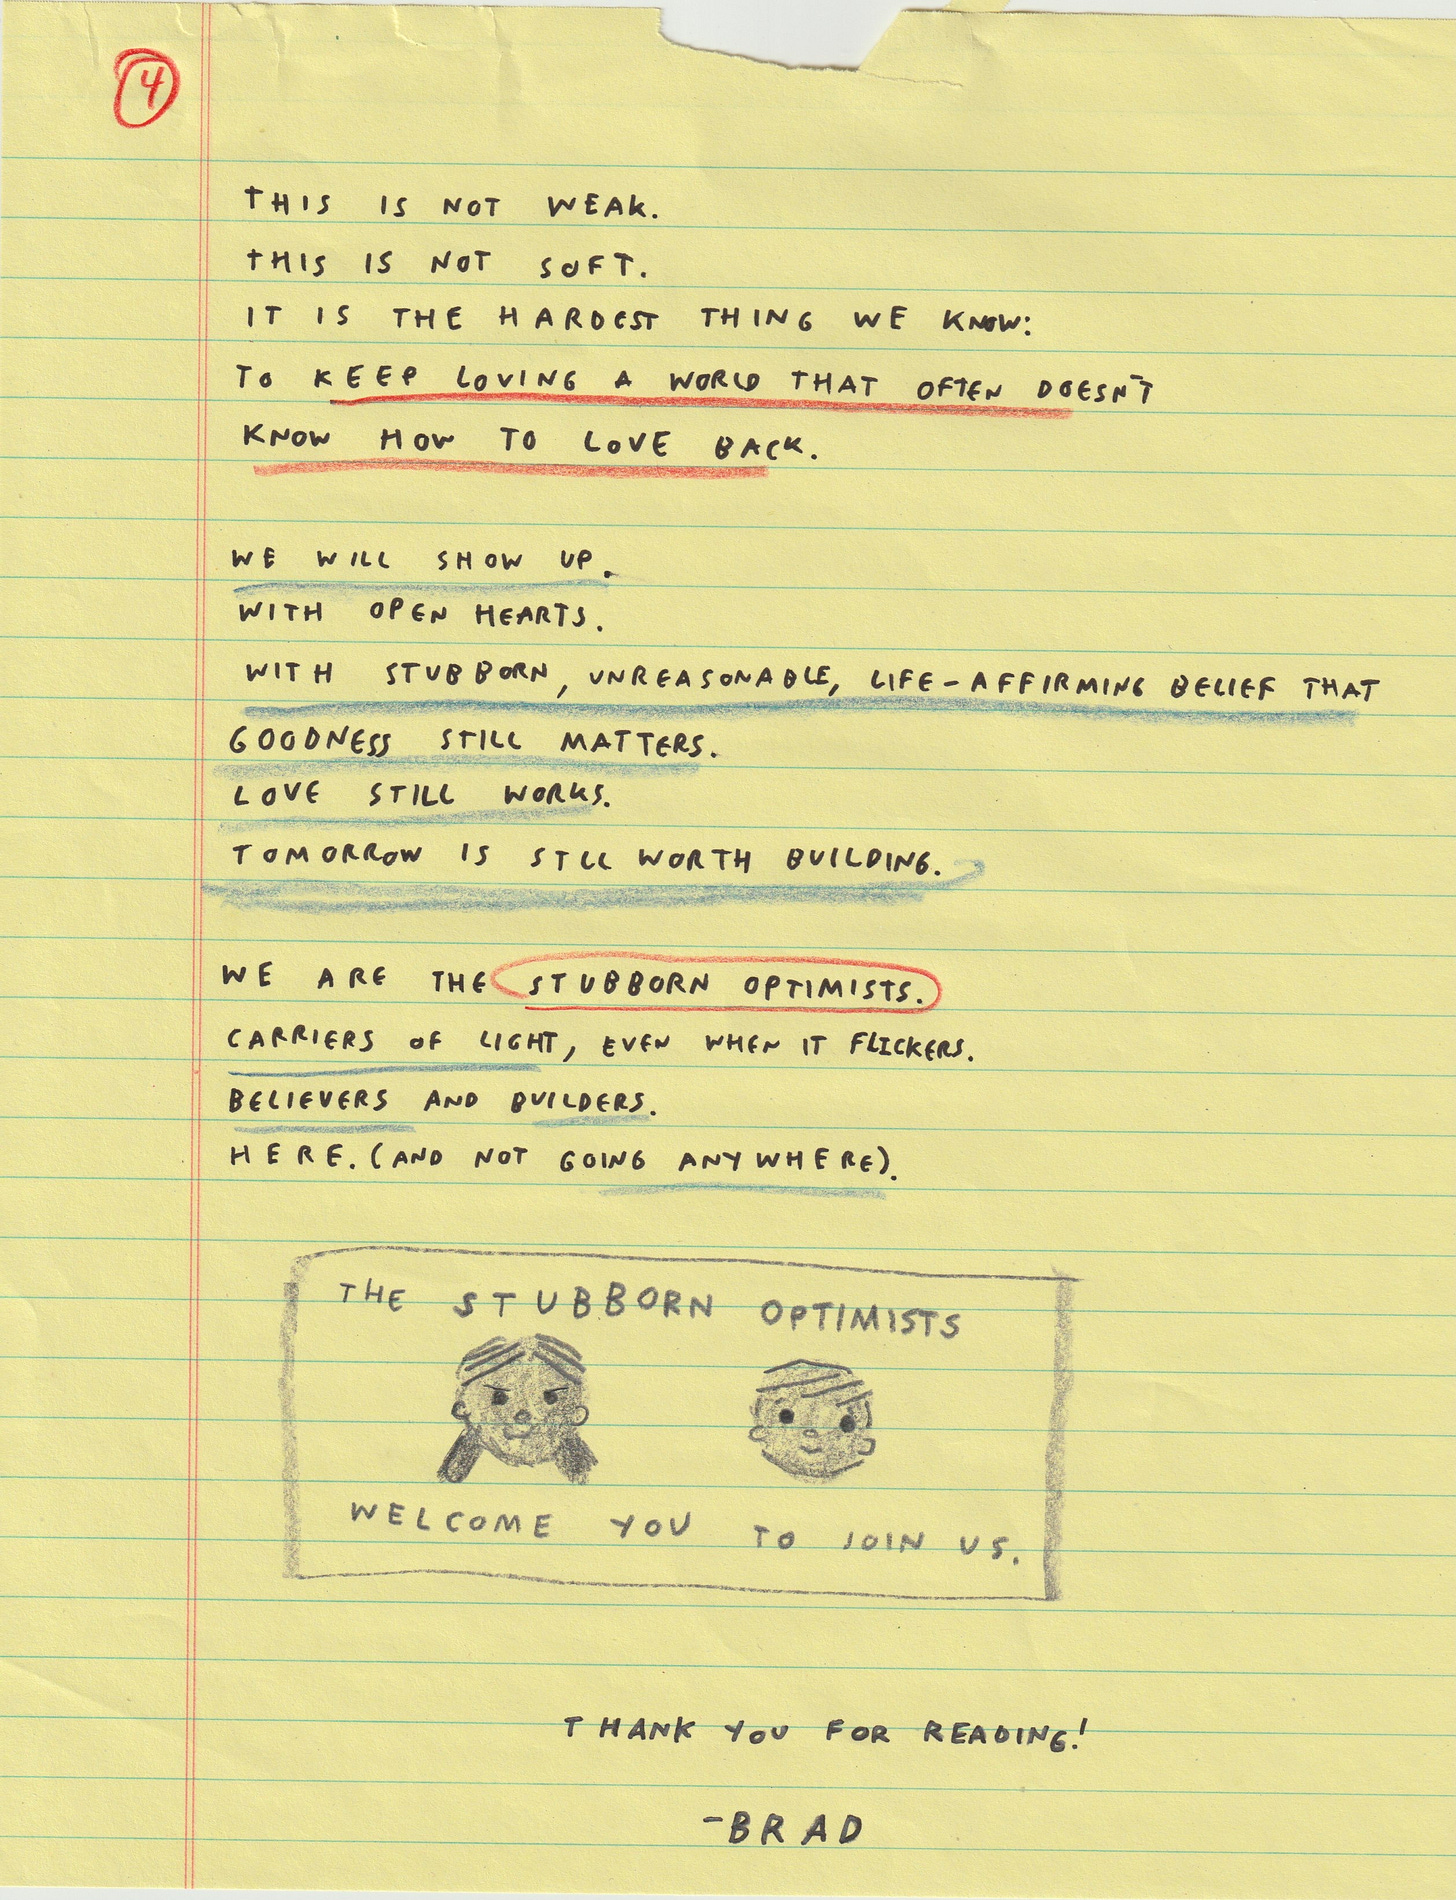 4
THIS IS NOT WEAK.
THIS IS NOT SOFT.
IT IS THE HARDEST THING WE KNOW:
TO KEEP LOVING A WORLD THAT OFTEN DOESN'T
KNOW HOW TO LOVE BACK.
WE WILL SHOW UP.
WITH OPEN HEARTS.
WITH STUBBORN, UNREASONABLE, LIFE-AFFIRMING BELIEF THAT
GOODNESS STILL MATTERS.
LOVE STILL WORKS.
TOMORROW IS STLL WORTH BUILDING.
WE ARE THE STUBBORN OPTIMISTS.
CARRIERS OF LIGHT, EVEN WHEN IT FLICKERS.
BELIEVERS AND BUILDERS.
HERE. (AND NOT GOING ANYWHERE).
THE STUBBORN OPTIMISTS
WELCOME YOU TO JOIN US.
THANK YOU FOR READING!
-BRAD